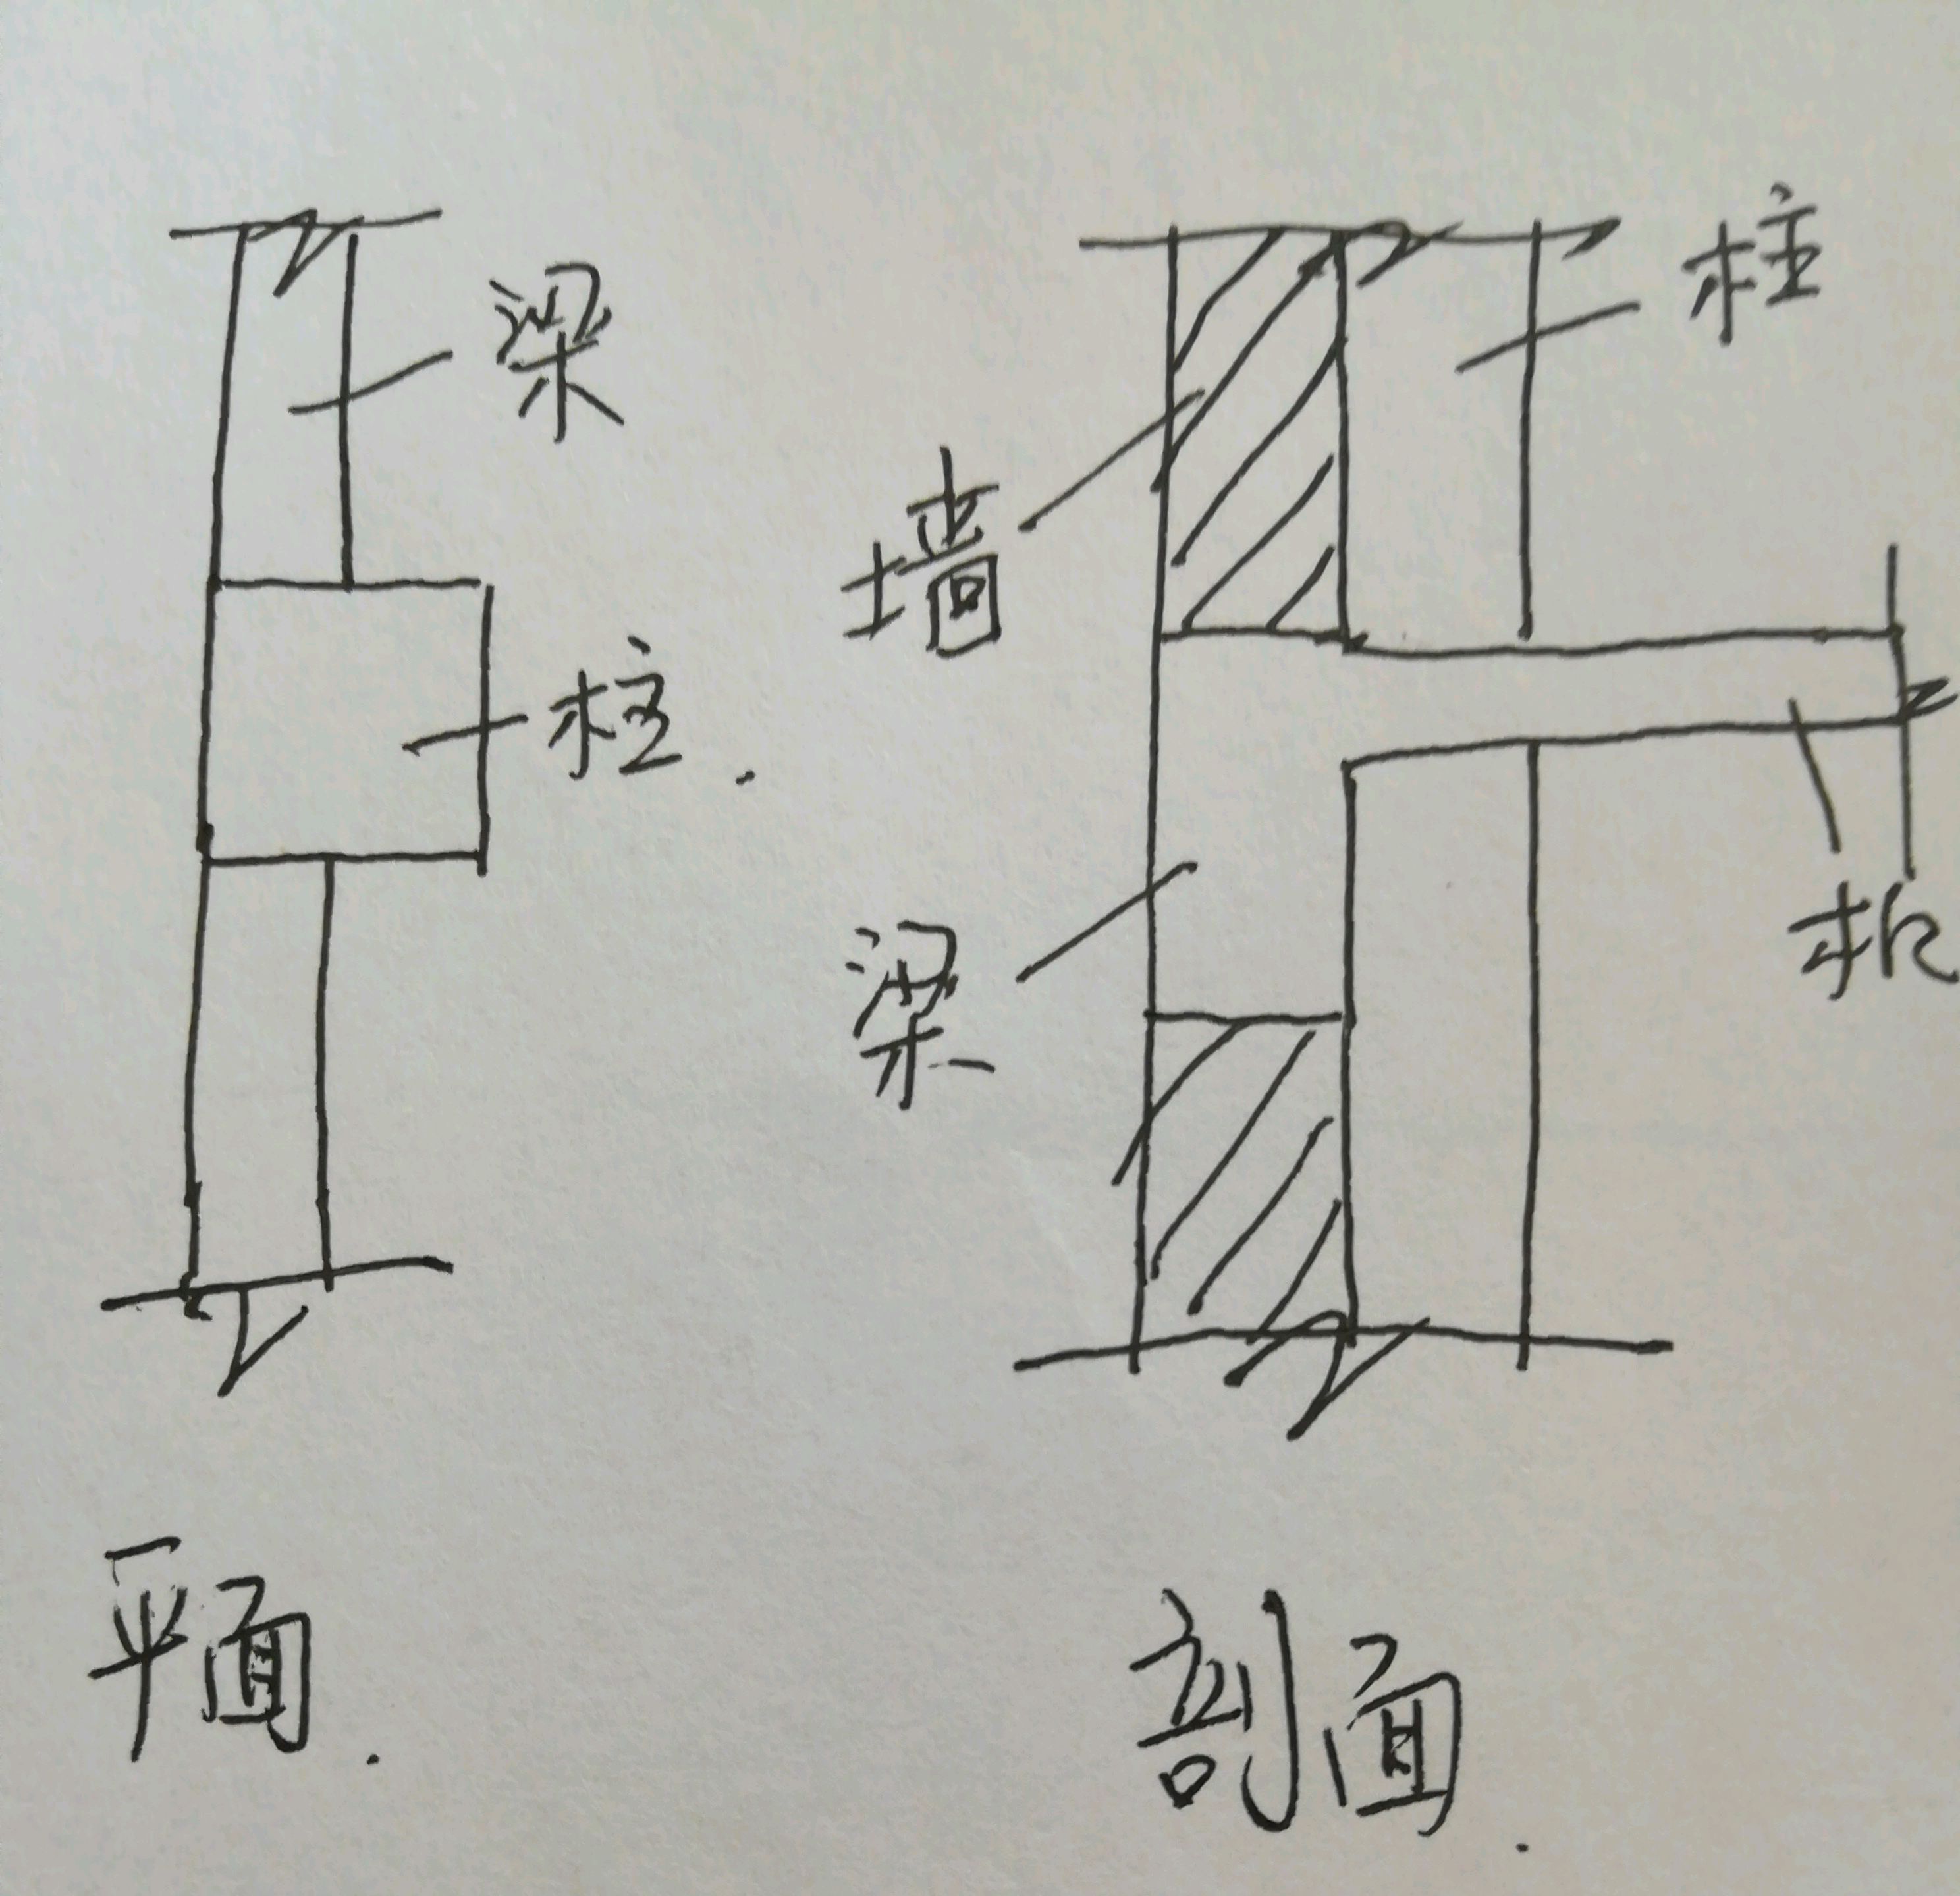 梁
柱
平面
柱
墙
梁
板
剖面